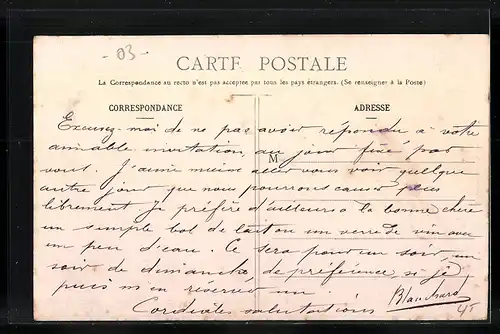 - 03 -
CARTE POSTALE
La Correspondance au recto n'est pas acceptée par tous les pays étrangers. (Se renseigner à la Poste)
CORRESPONDANCE
ADRESSE
M
Excusez-moi de ne pas avoir répondu à votre
aimable invitation, au jour fixé par
vous. J'aime mieux aller vous voir quelque
autre jour que nous pourrons causer plus
librement Je préfère d'ailleurs à la bonne chère
un simple bol de lait ou un verre de vin avec
un peu d'eau. Ce sera pour un soir, un
soir de dimanche, de préférence, si je
puis m'en réserver un.
Cordiales salutations
Blanchard
45